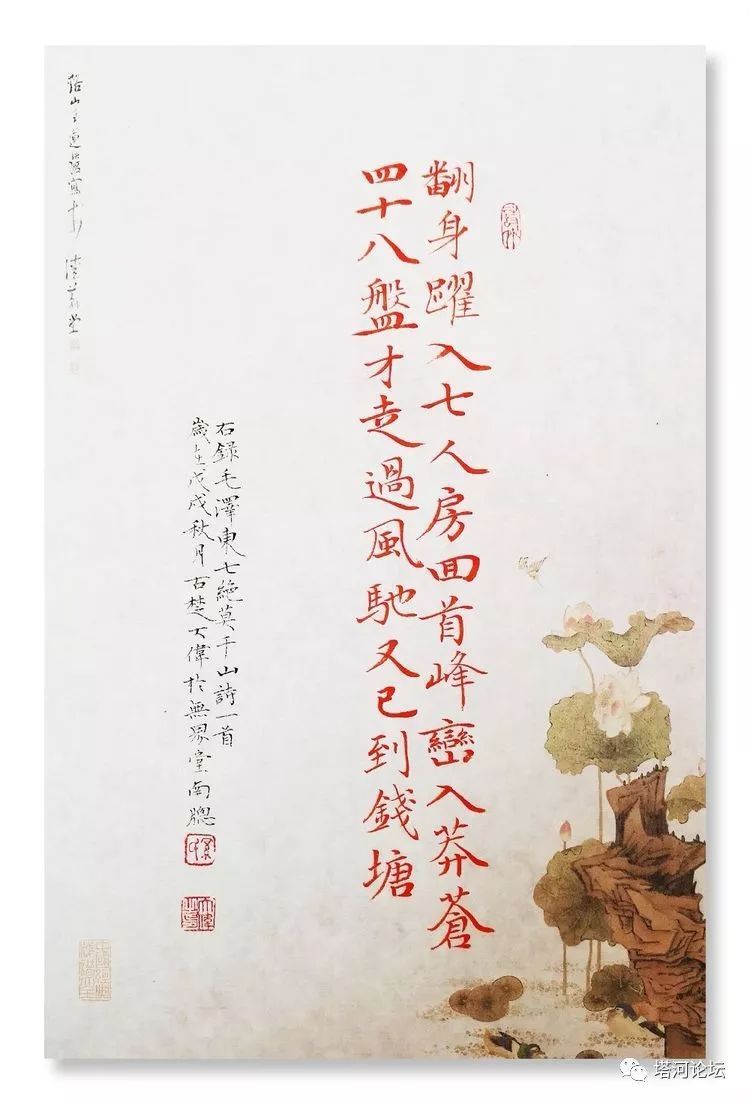 翻身躍入七人房回首峰巒入莽蒼
四十八盤才走過風馳又已到錢塘
右錄毛澤東七絶莫干山詩一首
歲在戊戌秋月古楚大偉於無界堂南牕
塔河论坛